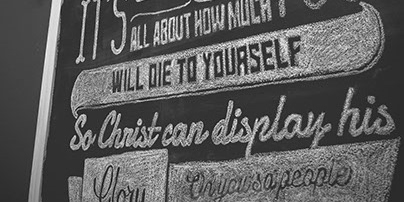 IT'S
ALL ABOUT HOW MUCH
WILL DIE TO YOURSELF
So Christ can display his
Glory
On you so people